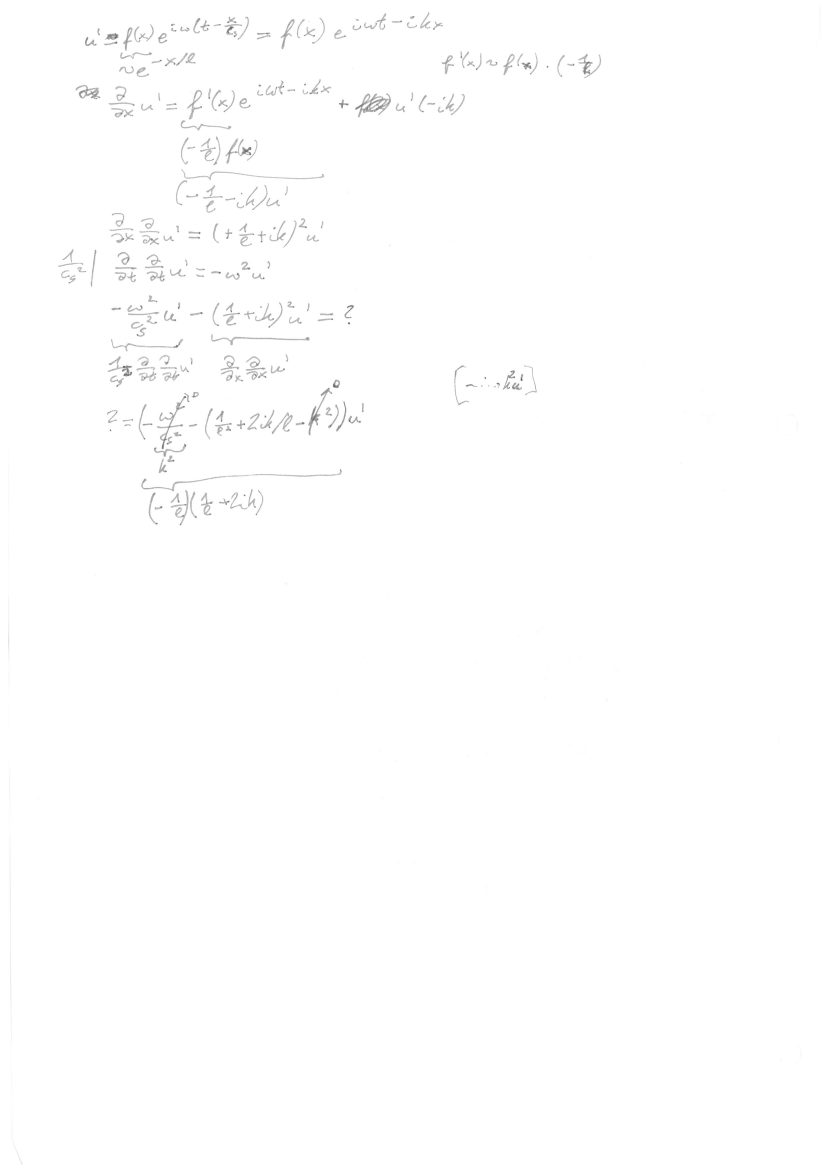 u' = f(x) e^{iω(t - x/c_s)} = f(x) e^{iωt - ikx}
~e^{-x/ℓ}
f'(x) ~ f(x) · (-1/ℓ)
∂/∂x u' = f'(x) e^{iωt - ikx} + u'(-ik)
(-1/ℓ) f(x)
(-1/ℓ - ik) u'
∂/∂x ∂/∂x u' = (+1/ℓ + ik)² u'
1/c_s² | ∂/∂t ∂/∂t u' = -ω² u'
-ω²/c_s² u' - (1/ℓ + ik)² u' = ?
1/c_s² ∂/∂t ∂/∂t u' ∂/∂x ∂/∂x u'
? = (-ω²/c_s² - (1/ℓ² + 2ik/ℓ - k²)) u'
0 0
k²
(-1/ℓ)(1/ℓ + 2ik)